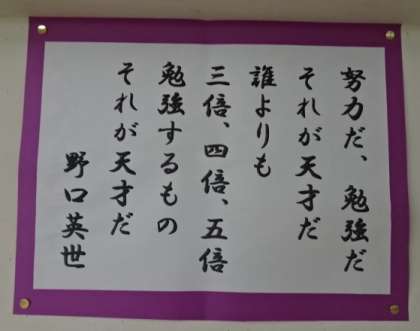 努力だ、勉強だ
それが天才だ
誰よりも
三倍、四倍、五倍
勉強するもの
それが天才だ
野口英世